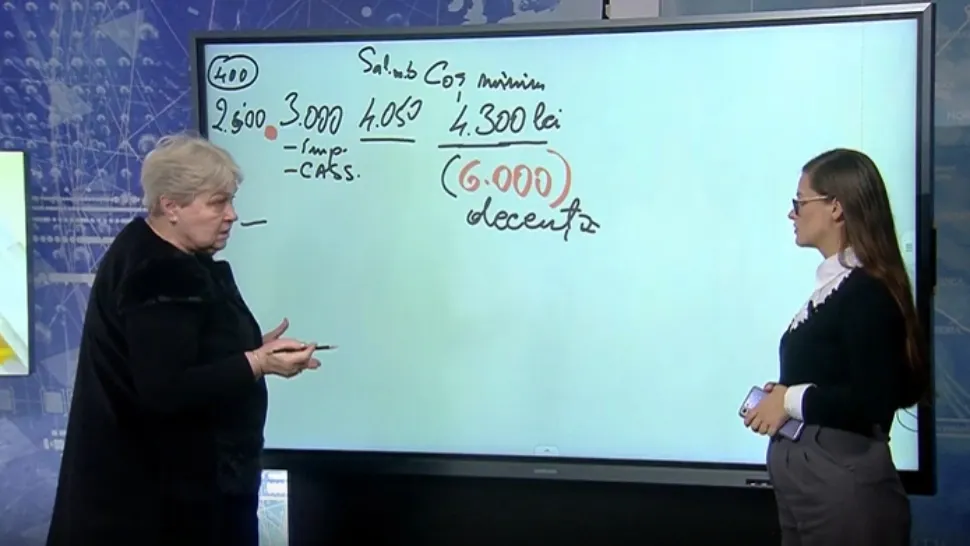 400
Sal. mb Coș minim
2.500 3.000 4.050 4.300 lei
- Imp.
- CASS.
(6.000)
decență